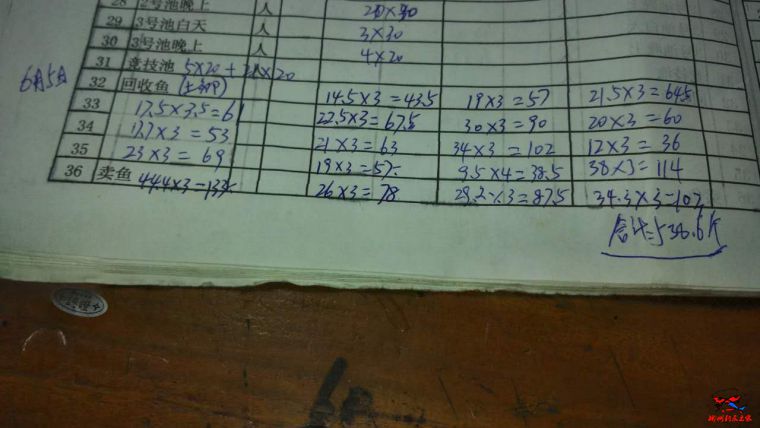 28 2号池晚上 人
29 3号池白天 人 3×30
30 3号池晚上 人 4×20
31 竞技池 5×20+ ×20
6月5日
32 回收鱼 14.5×3=43.5 19×3=57 21.5×3=64.5
33 17.5×3.5=61 22.5×3=67.5 30×3=90 20×3=60
34 17.7×3=53 21×3=63 34×3=102 12×3=36
35 23×3=69 19×3=57 9.5×4=38.5 38×3=114
36 卖鱼 44.4×3=133 26×3=78 29.2×3=87.5 34.3×3=102
合计=538.6斤